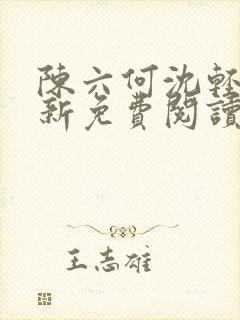 陳六何沈輕
新免費閱讀
王志雄